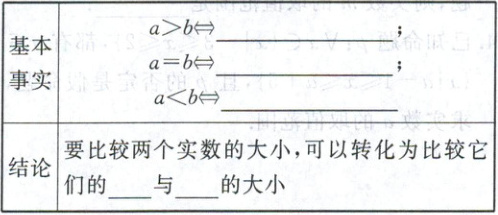 基本事实
a>b⇔________;
a=b⇔________;
a<b⇔________
结论
要比较两个实数的大小,可以转化为比较它
们的____与____的大小